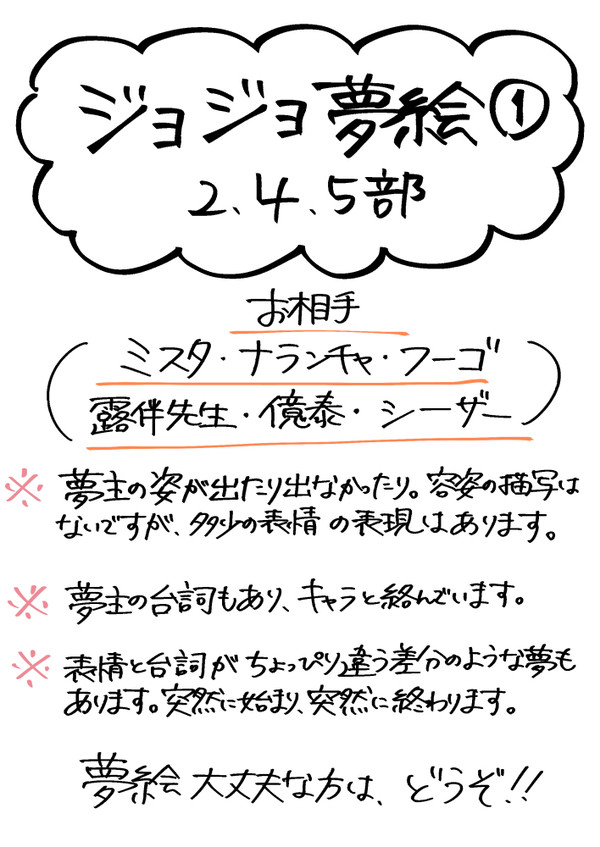 ジョジョ夢絵①
2、4、5部
お相手
(ミスタ・ナランチャ・フーゴ
露伴先生・億泰・シーザー)
※ 夢主の姿が出たり出なかったり。容姿の描写は
ないですが、多少の表情の表現はあります。
※ 夢主の台詞もあり、キャラと絡んでいます。
※ 表情と台詞がちょっぴり違う差分のような夢も
あります。突然に始まり、突然に終わります。
夢絵大丈夫な方は、どうぞ!!